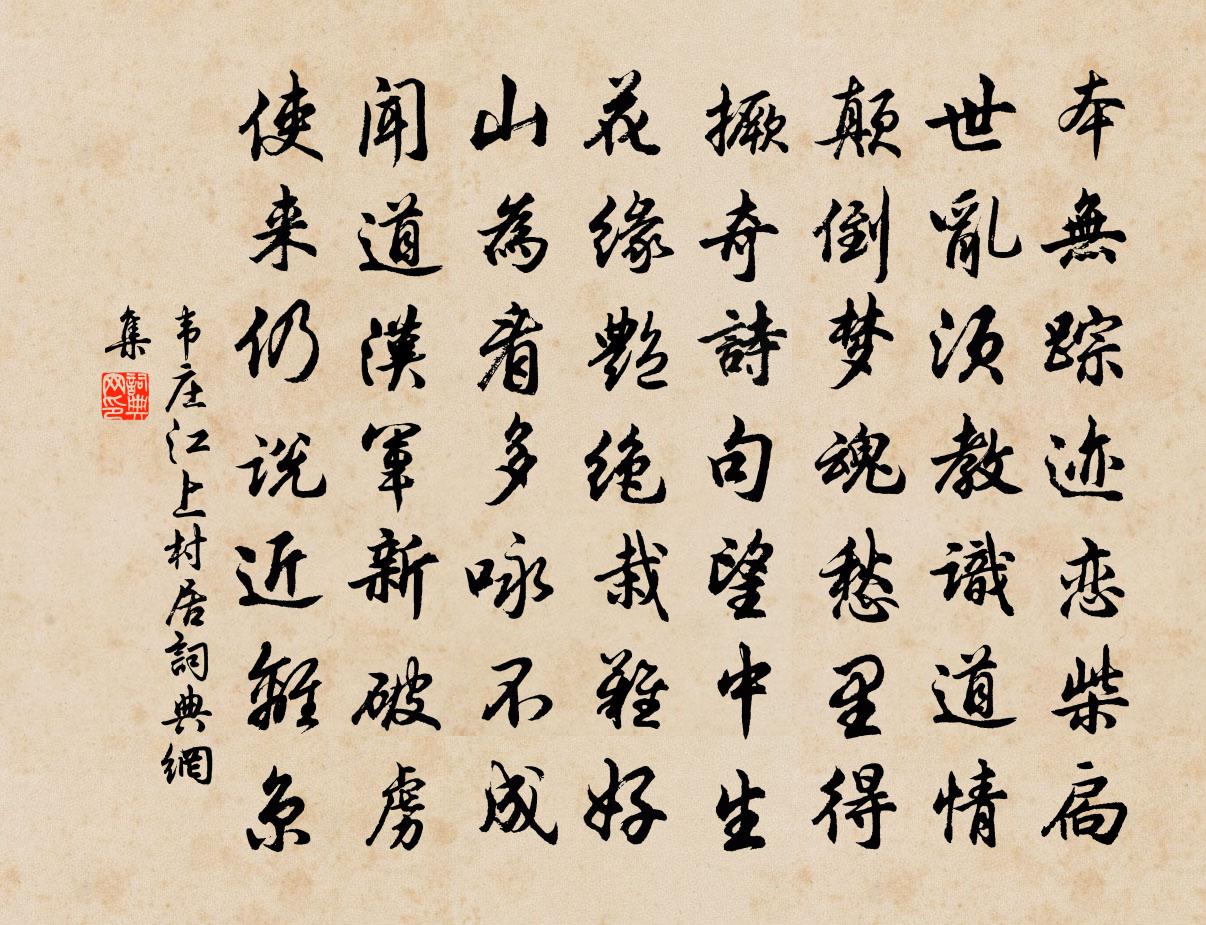 本無踪迹恋柴扃
世亂须教識道情
颠倒梦魂愁里得
撅奇詩句望中生
花缘艷绝栽難好
山為看多咏不成
聞道漢軍新破虏
使来仍说近離京
韦庄江上村居詞典網
集
詞典网印